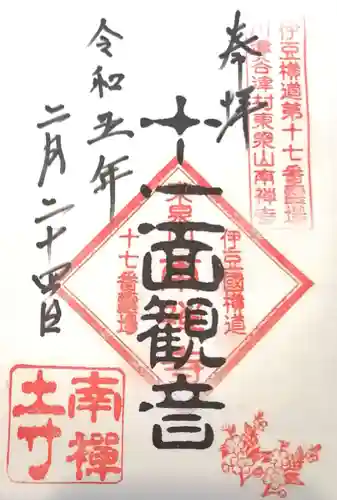 伊豆横道第十七番霊場
川津谷津村東泉山南禅寺
奉拝
十一面観音
令和五年
二月二十四日
東泉山
南禅寺
伊豆國横道
十七番霊場
南禅
土寸